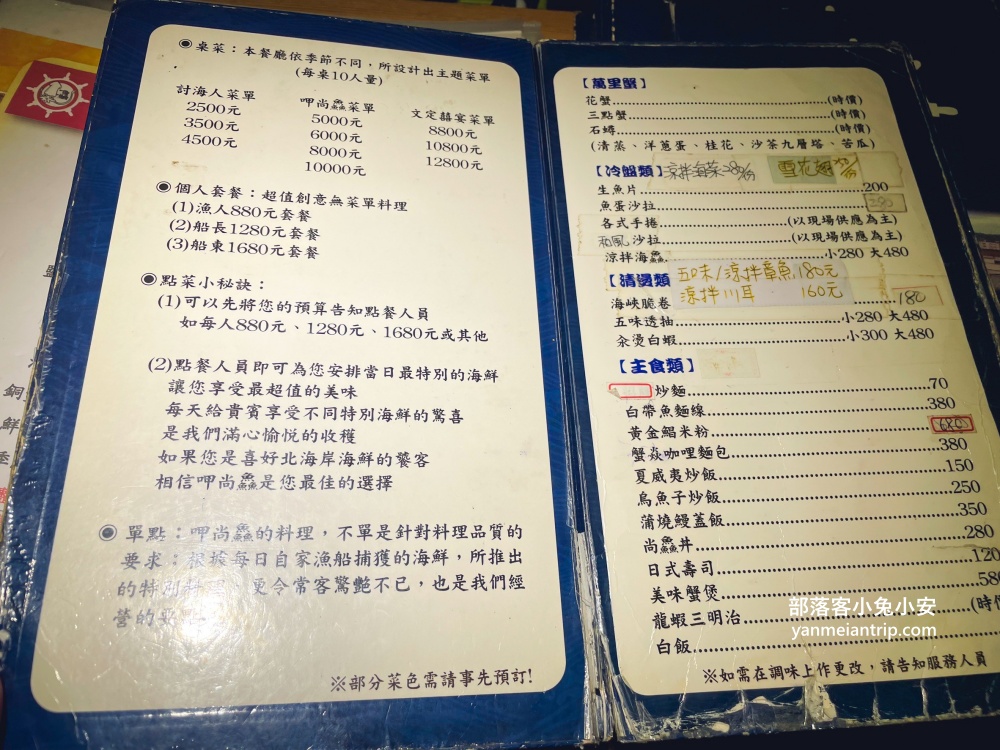 ◉桌菜：本餐廳依季節不同，所設計出主題菜單
(每桌10人量)
討海人菜單
2500元
3500元
4500元
呷尚鱻菜單
5000元
6000元
8000元
10000元
文定囍宴菜單
8800元
10800元
12800元
◉個人套餐：超值創意無菜單料理
(1)漁人880元套餐
(2)船長1280元套餐
(3)船東1680元套餐
◉點菜小秘訣：
(1)可以先將您的預算告知點餐人員
如每人880元、1280元、1680元或其他
(2)點餐人員即可為您安排當日最特別的海鮮
讓您享受最超值的美味
每天給貴賓享受不同特別海鮮的驚喜
是我們滿心愉悅的收穫
如果您是喜好北海岸海鮮的饕客
相信呷尚鱻是您最佳的選擇
◉單點：呷尚鱻的料理，不單是針對料理品質的
要求；根據每日自家漁船捕獲的海鮮，所推出
的特別料 更令常客驚艷不已，也是我們經
營的要
※部分菜色需請事先預訂!
【萬里蟹】
花蟹(時價)
三點蟹(時價)
石蟳(時價)
(清蒸、洋蔥蛋、桂花、沙茶九層塔、苦瓜)
【冷盤類】涼拌海菜 雪花翅
生魚片200
魚蛋沙拉280
各式手捲(以現場供應為主)
和風沙拉(以現場供應為主)
涼拌海鱻小280 大480
【清燙類 五味/涼拌章魚180元
涼拌川耳 160元
海峽脆卷180
五味透抽小280 大480
汆燙白蝦小300 大480
【主食類】
炒麵70
白帶魚麵線380
黃金鯧米粉680
蟹焱咖哩麵包380
夏威夷炒飯150
烏魚子炒飯250
蒲燒鰻蓋飯350
尚鱻丼280
日式壽司120
美味蟹煲580
龍蝦三明治(時價
白飯
※如需在調味上作更改，請告知服務人員
部落客小兔小安
yanmeiantrip.com
銅
鮮